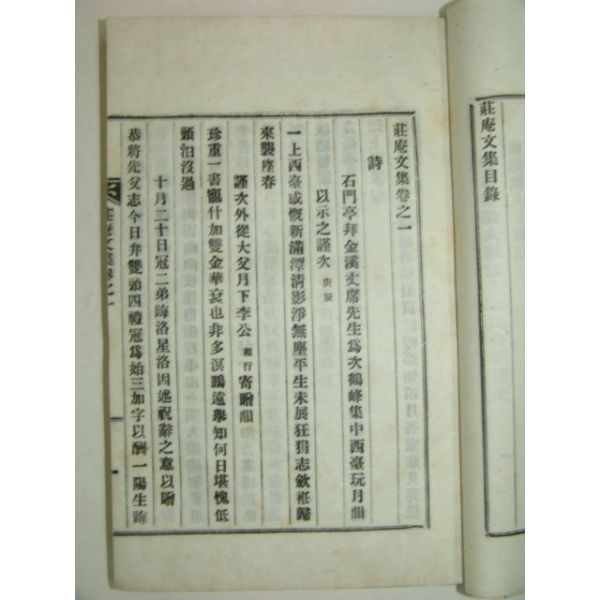 莊庵文集目錄
莊庵文集卷之一
詩
石門亭拜金溪丈席先生爲次鶴峰集中西臺玩月韻
以示之謹次 庚辰
一上西臺感慨新滿潭淸影淨無塵平生未展狂狷志歛袵歸
來襲座春
謹次外從大父月下李公 寄贈韻
珍重一書寵什加雙金華袞也非多溟鵬遠擧知何日堪愧低
頭汨沒過
十月二十日冠二弟晦洛星洛因述祝辭之意以贈
恭將先父志今日弁雙頭四禮冠爲始三加字以酬一陽生晦
莊庵文集卷之一